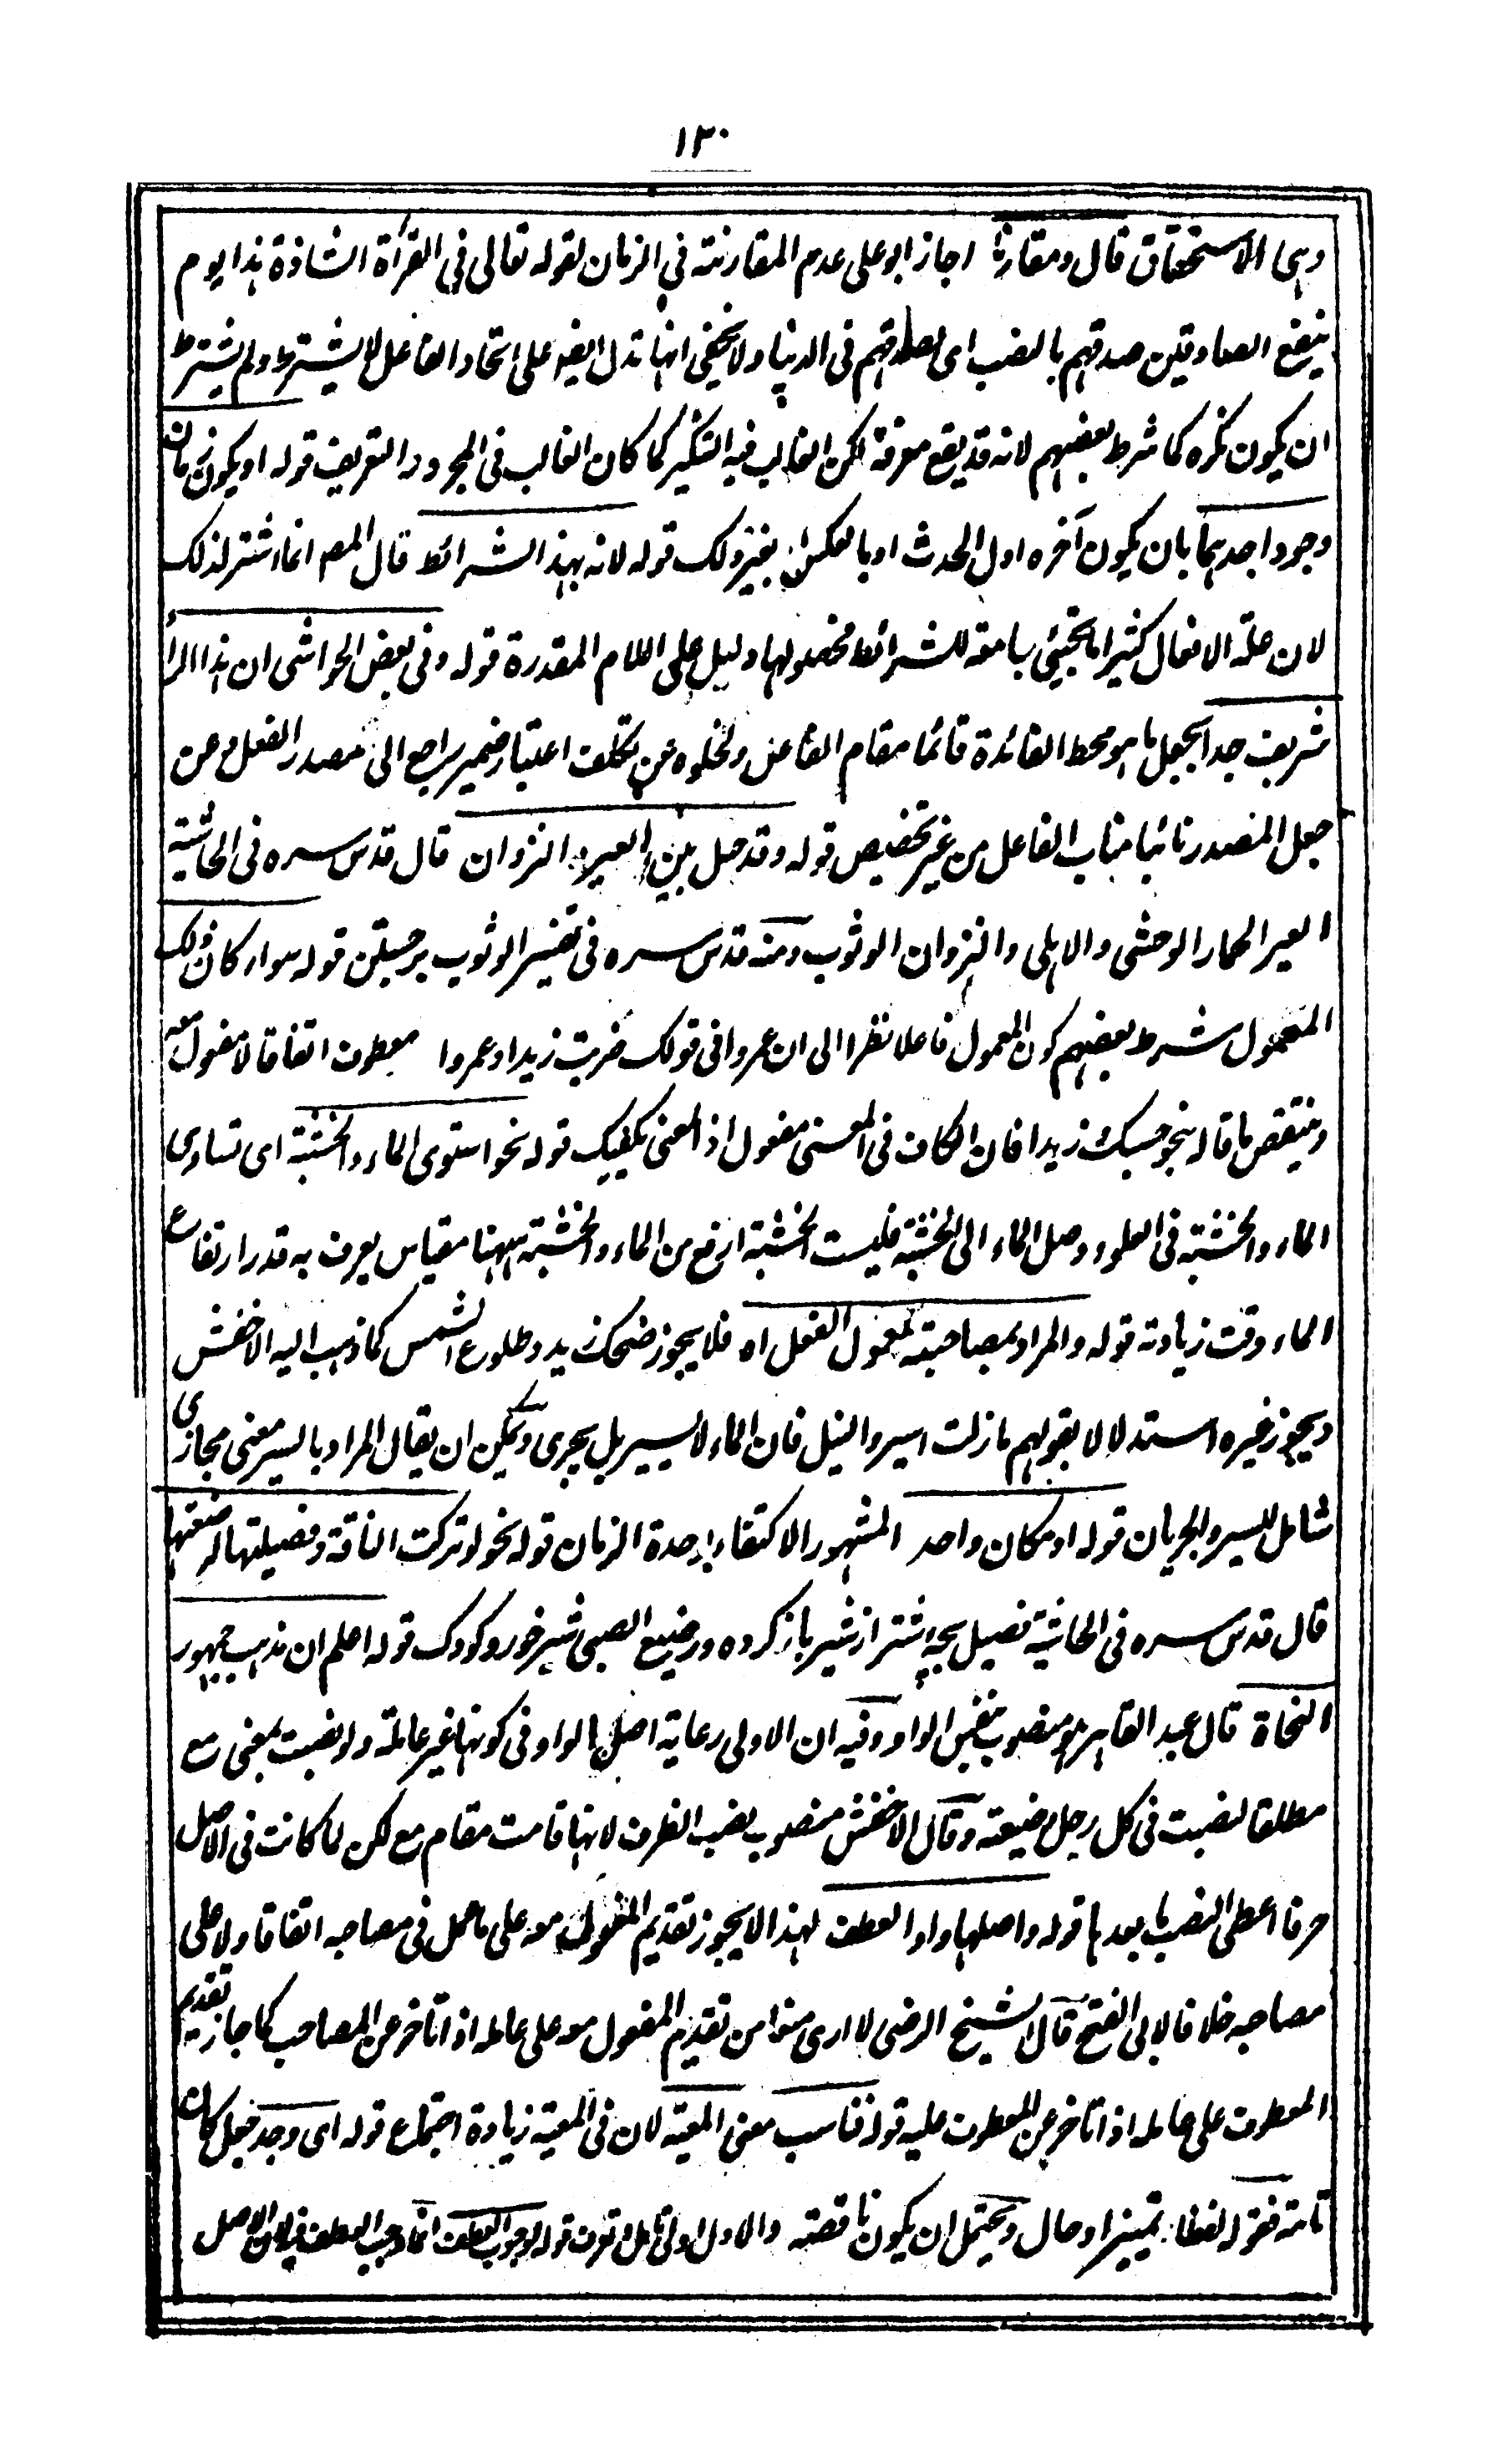 ١٣٠
وہی الاستحقاق قال ومقارنا اجاز ابو علی عدم المقارنته فی الزمان لقوله تعالی فی القرأة الشاذة ہذا یوم
ینفع الصادقین صدقہم بالنصب ای لصدقہم فی الدنیا ولا یخفی انہا تدل ایضا علی اتحاد الفاعل لا یشترط ولم یشترط
ان یکون نکره کما شرط بعضہم لانه قد یقع معرفة لکن الغالب فیه التنکیر کما کان الغالب فی المجرور التعریف قوله او یکون زمان
وجود احدہما بان یکون آخره اول الحدث او بالعکس او بغیر ذلک قوله لانه بہذه الشرائط قال المصـ انما اشترط ذلک
لان علة الافعال کثیرا ما تجیئ جامعة للشرائط فحصولہا دلیل علی اللام المقدرة قوله وفی بعض الحواشی ان ہذا الرأ
شریف جدا بجعل ما ہو محط الفائدة قائما مقام الفاعل ولخلوه عن تکلف اعتبار ضمیر راجع الی مصدر الفعل وعن
جعل المصدر نائبا مناب الفاعل من غیر تخصیص قوله وقد حیل بین العیر والنزوان قال قدس سره فی الحاشیة
العیر الحمار الوحشی والاہلی والنزوان الوثوب ومنه قدس سره فی تفسیر الوثوب برجستن قوله سواء کان ذلک
المعمول شرط بعضہم کون المعمول فاعلا نظرا الی ان عمروا فی قولک ضربت زیدا وعمروا معطوف اتفاقا لا مفعول معه
وینتقض ما قاله بنحو حسبک وزیدا فان الکاف فی المعنی مفعول اذ المعنی یکفیک قوله نحو استوی الماء والخشبة ای تساوی
الماء والخشبة فی العلو ووصل الماء الی الخشبة فلیست الخشبة ارفع من الماء والخشبة ہہنا مقیاس یعرف به قدر ارتفاع
الماء وقت زیادته قوله والمراد بمصاحبته لمعمول الفعل اه فلا یجوز ضحک زید وطلوع الشمس کما ذہب الیه الاخفش
ویجوز غیره استدلالا بقولہم ما زلت اسیر والنیل فان الماء لا یسیر بل یجری ویمکن ان یقال المراد بالسیر معنی مجازی
شامل للسیر والجریان قوله او مکان واحد المشہور الاکتفاء بوحدة الزمان قوله نحو لو ترکت الناقة وفصیلتہا لرضعتہا
قال قدس سره فی الحاشیة فصیل بچہ شتر از شیر باز کرده ورضیع الصبی شیر خور وکودک قوله اعلم ان مذہب جمہور
النحاة قال عبد القاہر ہو منصوب بنفس الواو وفیه ان الاولی رعایة اصل الواو فی کونہا غیر عاملة ولو نصبت بمعنی مع
مطلقا لنصبت فی کل رجل وضیعته وقال الاخفش منصوب نصب الظرف لانہا قامت مقام مع لکن لما کانت فی الاصل
حرفا اعطی النصب ما بعدہا قوله واصلہا واو العطف لہذا لا یجوز تقدیم المفعول معه علی ما عمل فی مصاحبه اتفاقا ولا علی
مصاحبه خلافا لابی الفتح قال الشیخ الرضی لا اری منعا من تقدیم المفعول معه علی عامله اذا تاخر عن المصاحب کما جاز تقدیم
المعطوف علی عامله اذا تاخر عن المعطوف علیه قوله فناسب معنی المعیة لان فی المعیة زیادة اجتماع قوله ای وجد جعل کان
تامة فقوله لفظا تمییز او حال ویحتمل ان یکون ناقصته والاول اولی تامل تعرف قوله لوجوب العطف انما وجب العطف فیه لان الاصل